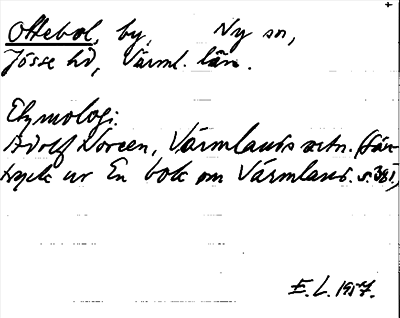 Ottebol, by, Ny sn,
Jösse hd, Värml. län.
Etymologi:
Adolf Noreen, Värmlands ortn. (Sär-
tryck ur En bok om Värmland. s. 38.),
E. L. 1917.